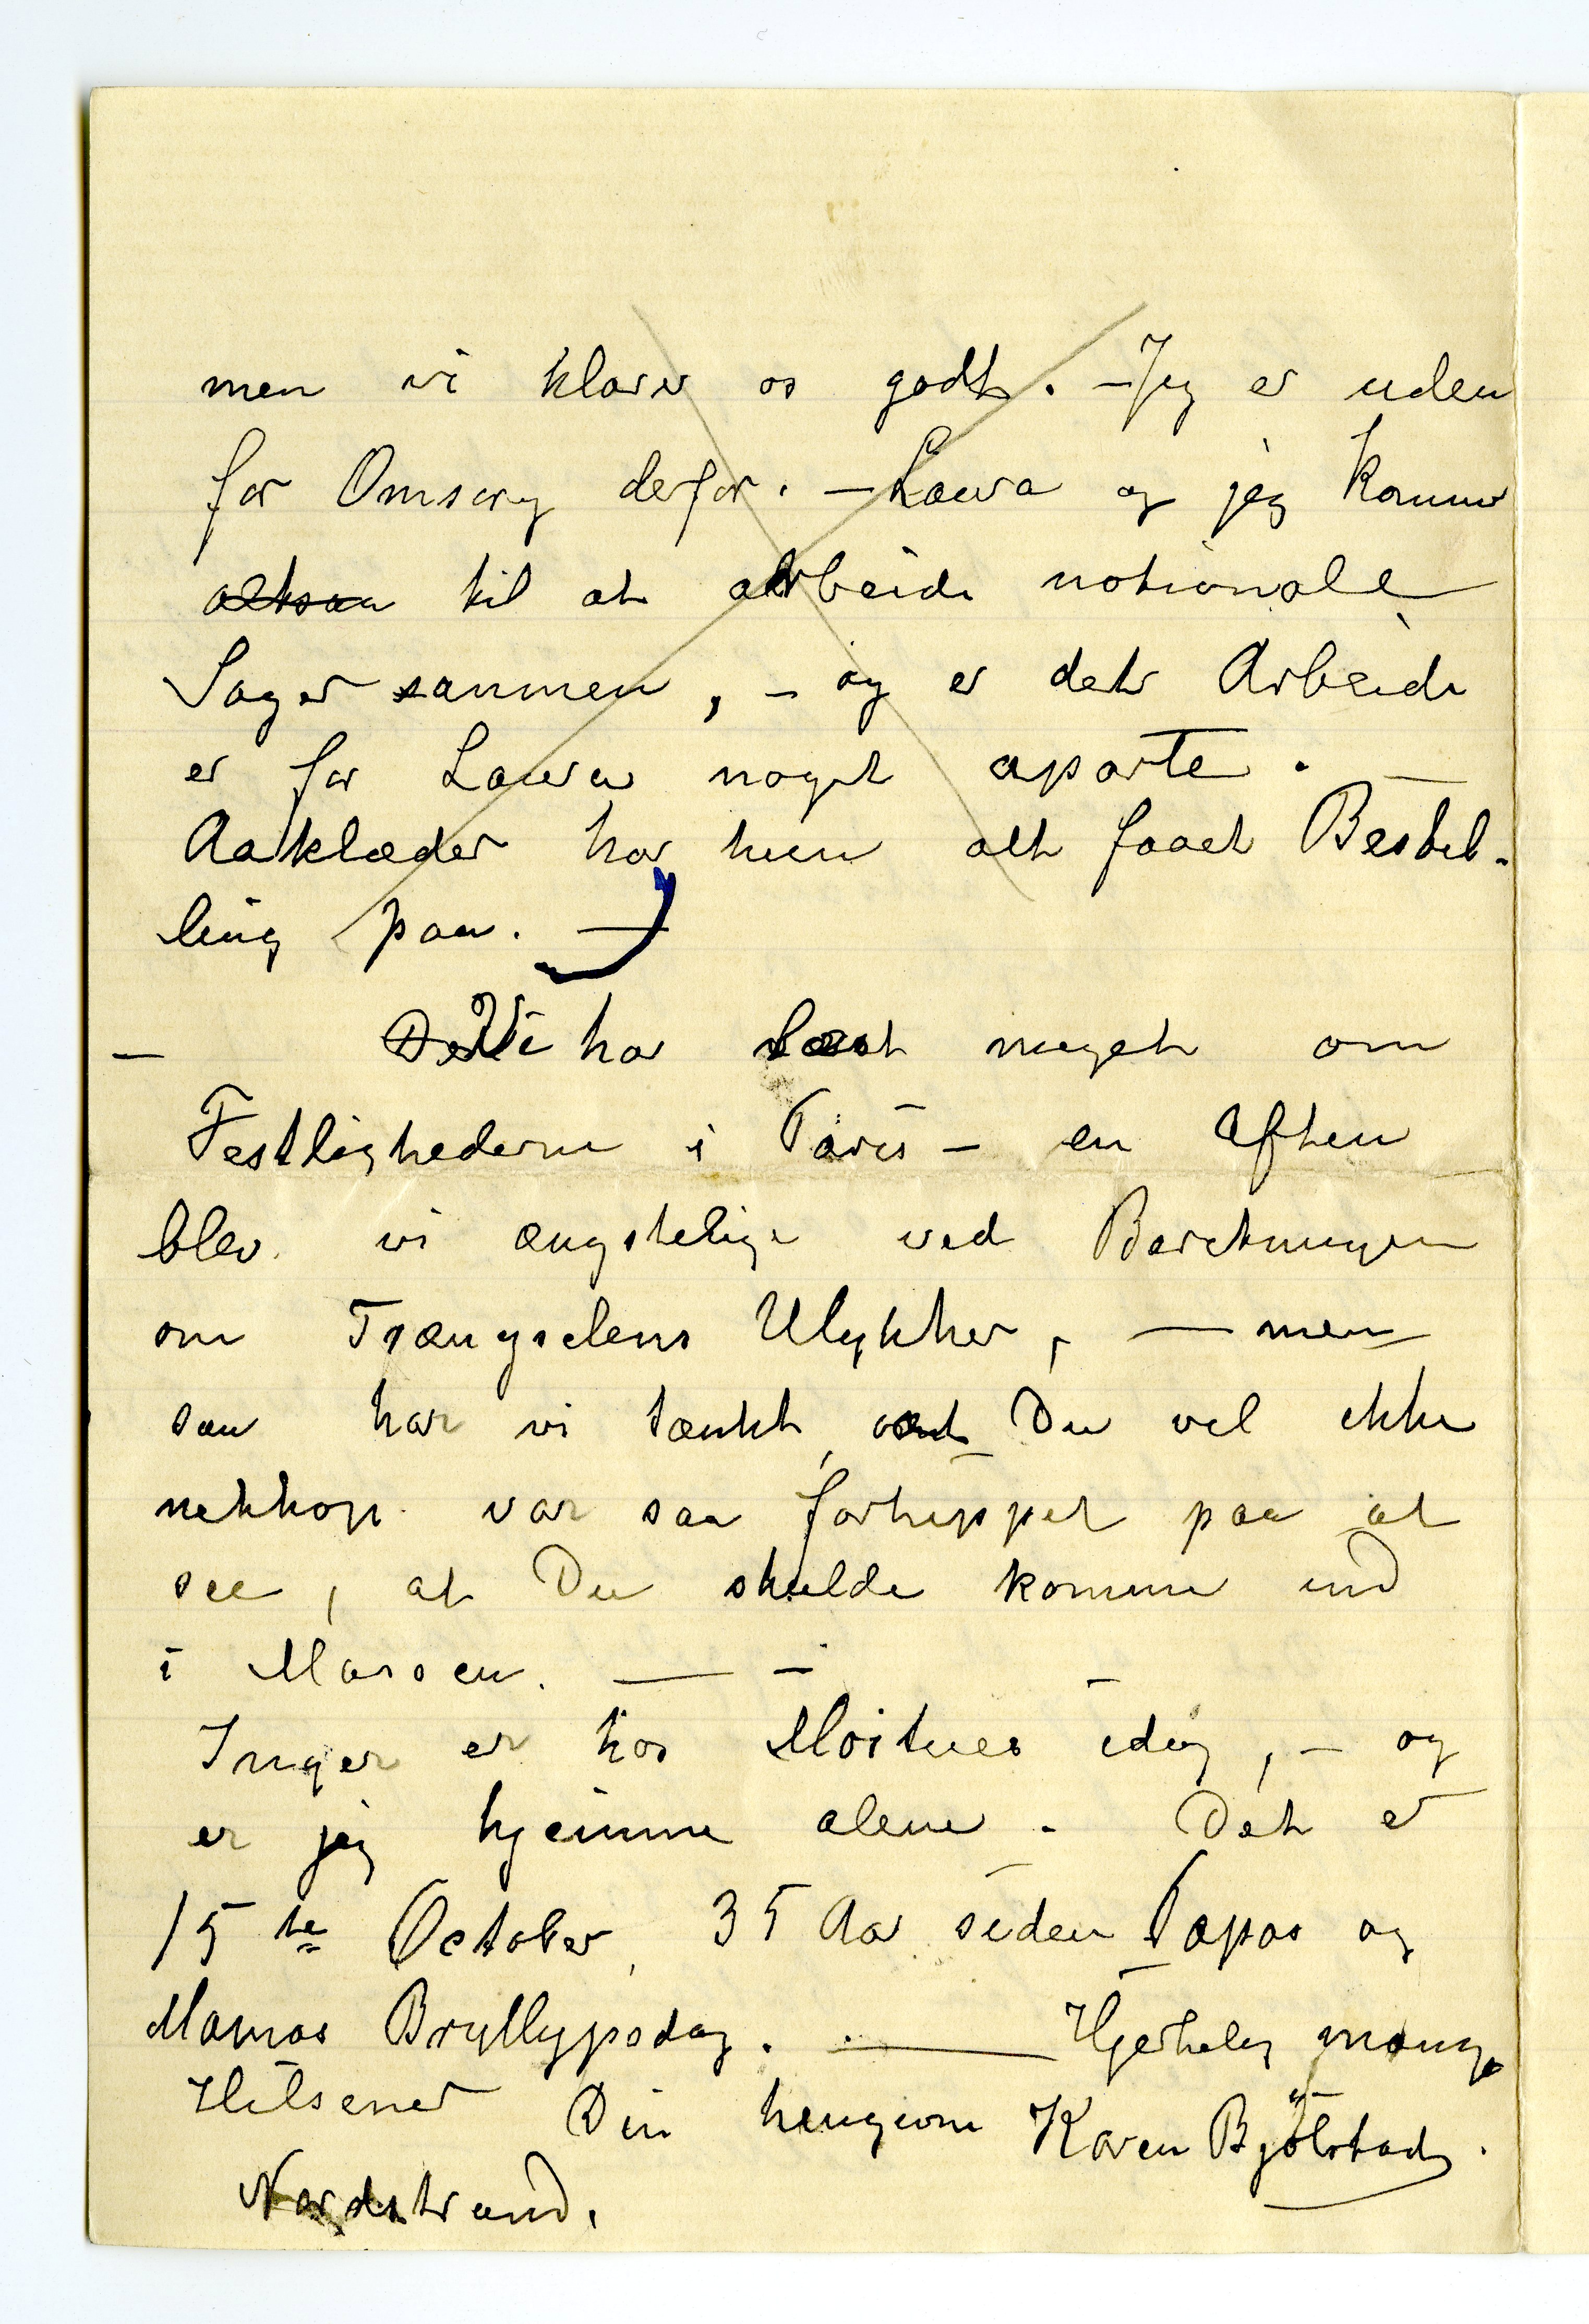 men vi klarer os godt. – Jeg er uden
for Omsorg derfor. – Laura og jeg kommer
altsaa til at arbeide nationale
Sager sammen, – og er det Arbeide
er for Laura noget aparte. –
Aaklæder har hun alt faaet Bestel-
ling paa. –
– Vi har læst meget om
Festlighederne i Paris – en Aften
blev vi ængstelige ved Beretningen
om Trængselens Ulykker, – men
saa har vi tænkt, at Du vel ikke
netkop var saa forhippet paa at
see, at Du skulde komme ind
i Massen. – –
Inger er hos idag, – og
er jeg hjemme alene. Det er
15te October, 35 Aar siden Papas og
Mamas Bryllypsdag. – Hjertelig mange
Hilsener Din hengivne Karen Bjölstad.
Nordstrand.